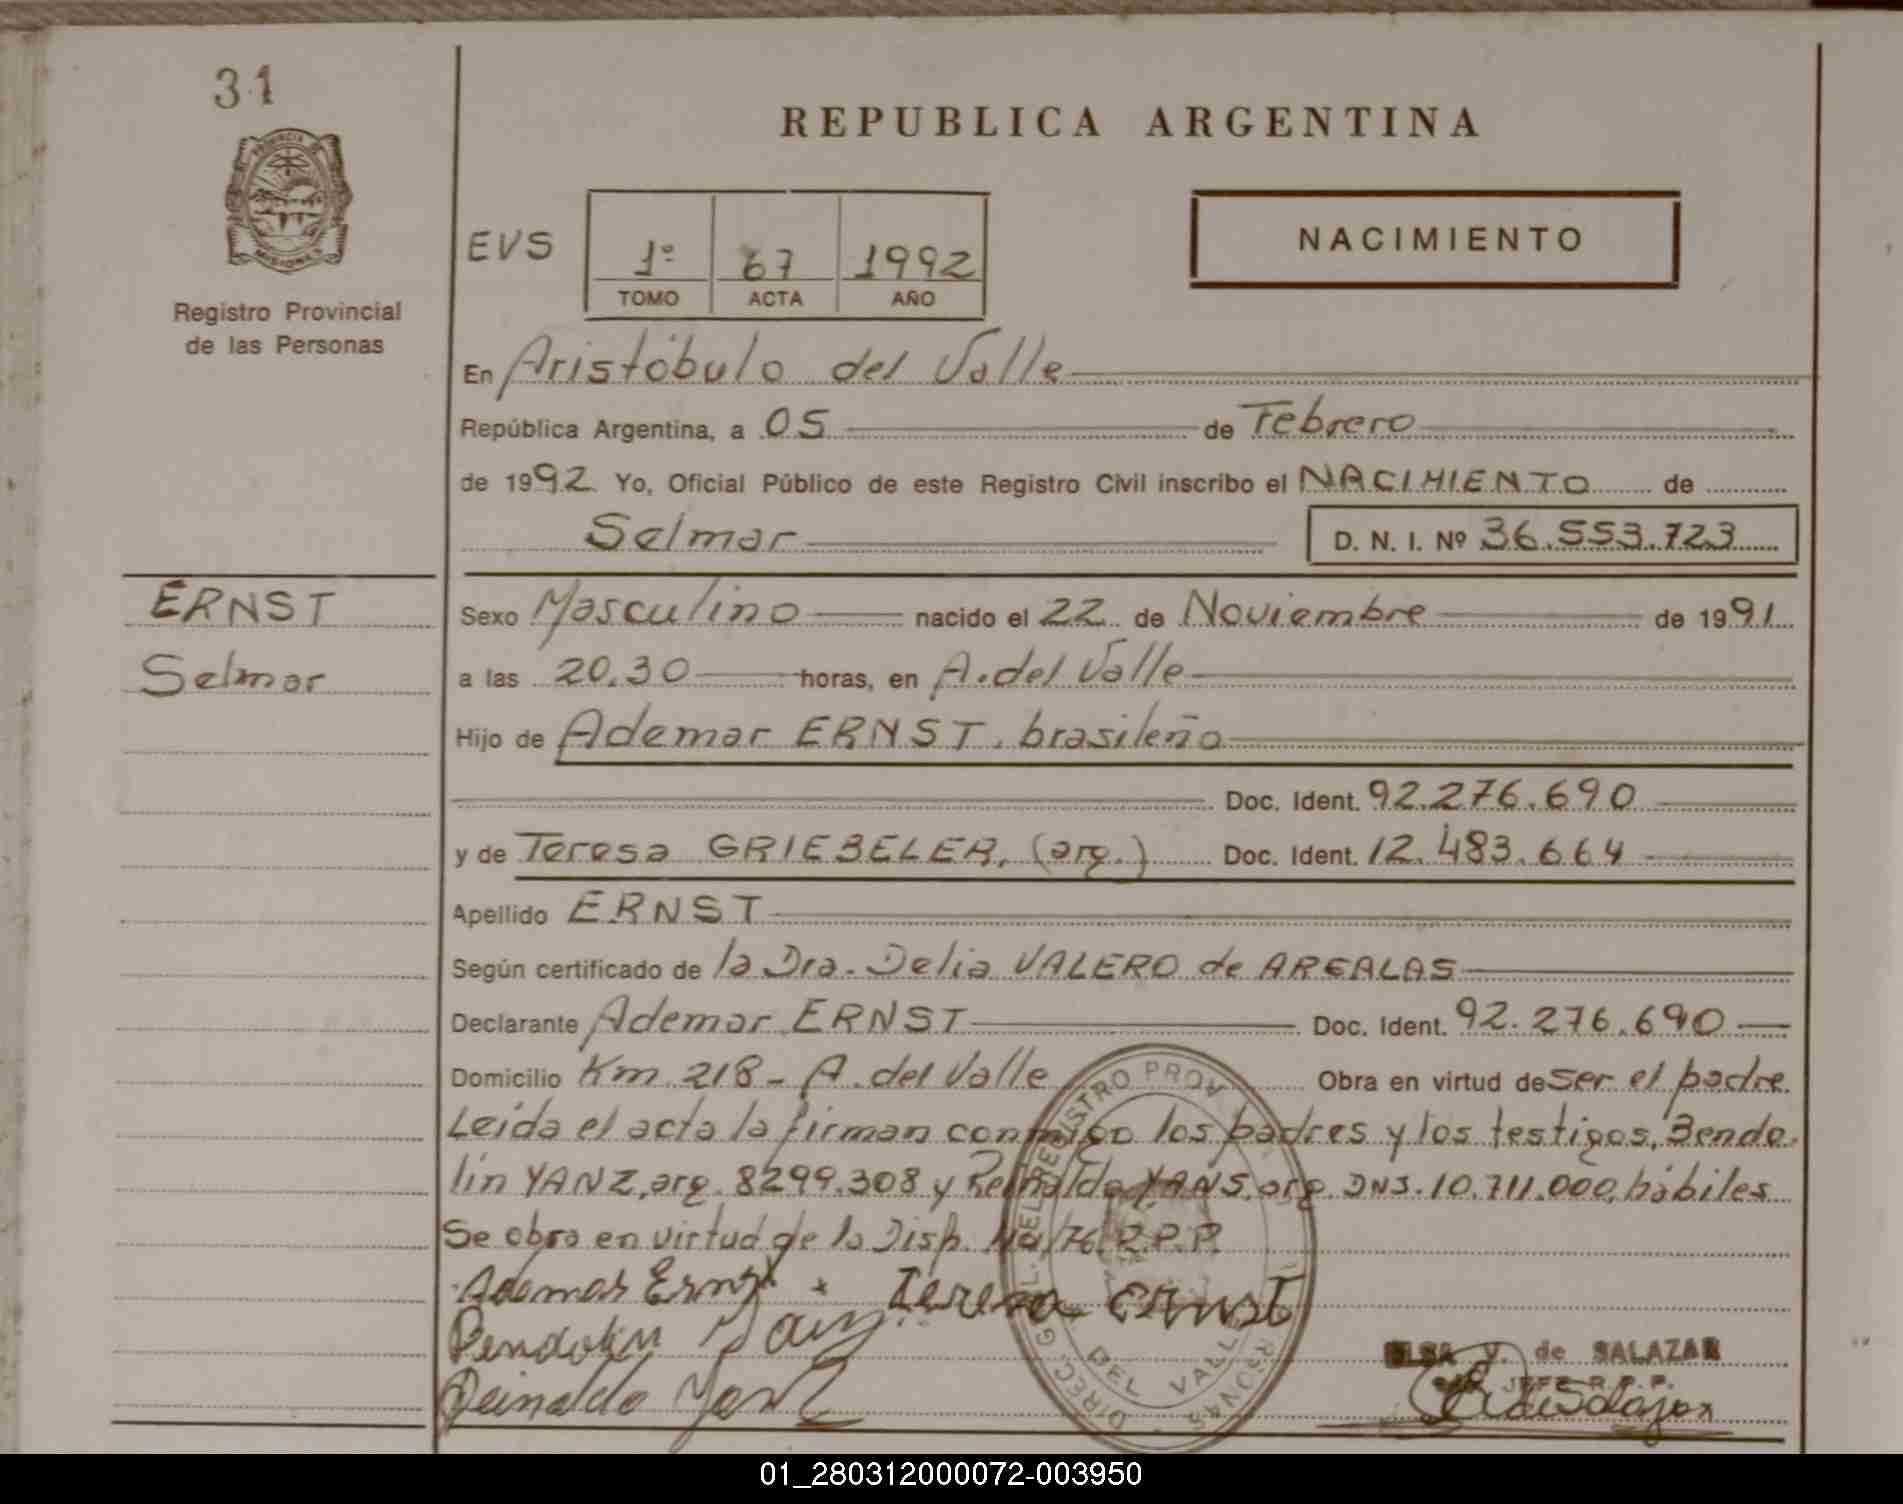 31
REPUBLICA ARGENTINA
PROVINCIA DE MISIONES
Registro Provincial
de las Personas
EVS
1º 67 1992
TOMO ACTA AÑO
NACIMIENTO
En Aristóbulo del Valle
República Argentina, a 05 de Febrero
de 1992 Yo, Oficial Público de este Registro Civil inscribo el NACIMIENTO de
Selmar D. N. I. Nº 36.553.723
ERNST
Selmar
Sexo Masculino nacido el 22 de Noviembre de 1991
a las 20.30 horas, en A. del Valle
Hijo de Ademar ERNST, brasileño
Doc. Ident. 92.276.690
y de Teresa GRIEBELER, (arg.) Doc. Ident. 12.483.664
Apellido ERNST
Según certificado de la Dra. Delia VALERO de
Declarante Ademar ERNST Doc. Ident. 92.276.690
Domicilio Km 218 - A. del Valle Obra en virtud de ser el padre.
Leída el acta la firman conmigo los padres y los testigos, Bendo
lin YANZ, arg. 8299.308 y Reinaldo YANS, arg. DNI. 10.711.000, hábiles
Se obra en virtud de la Disp. /76 R.P.P.
Ademar Ernst Teresa Ernst
Reinaldo
DIREC. GRAL. DEL REGISTRO PROV.
DEL VALLE
ELSA V. de SALAZAR
JEFE R.P.P.
01_280312000072-003950